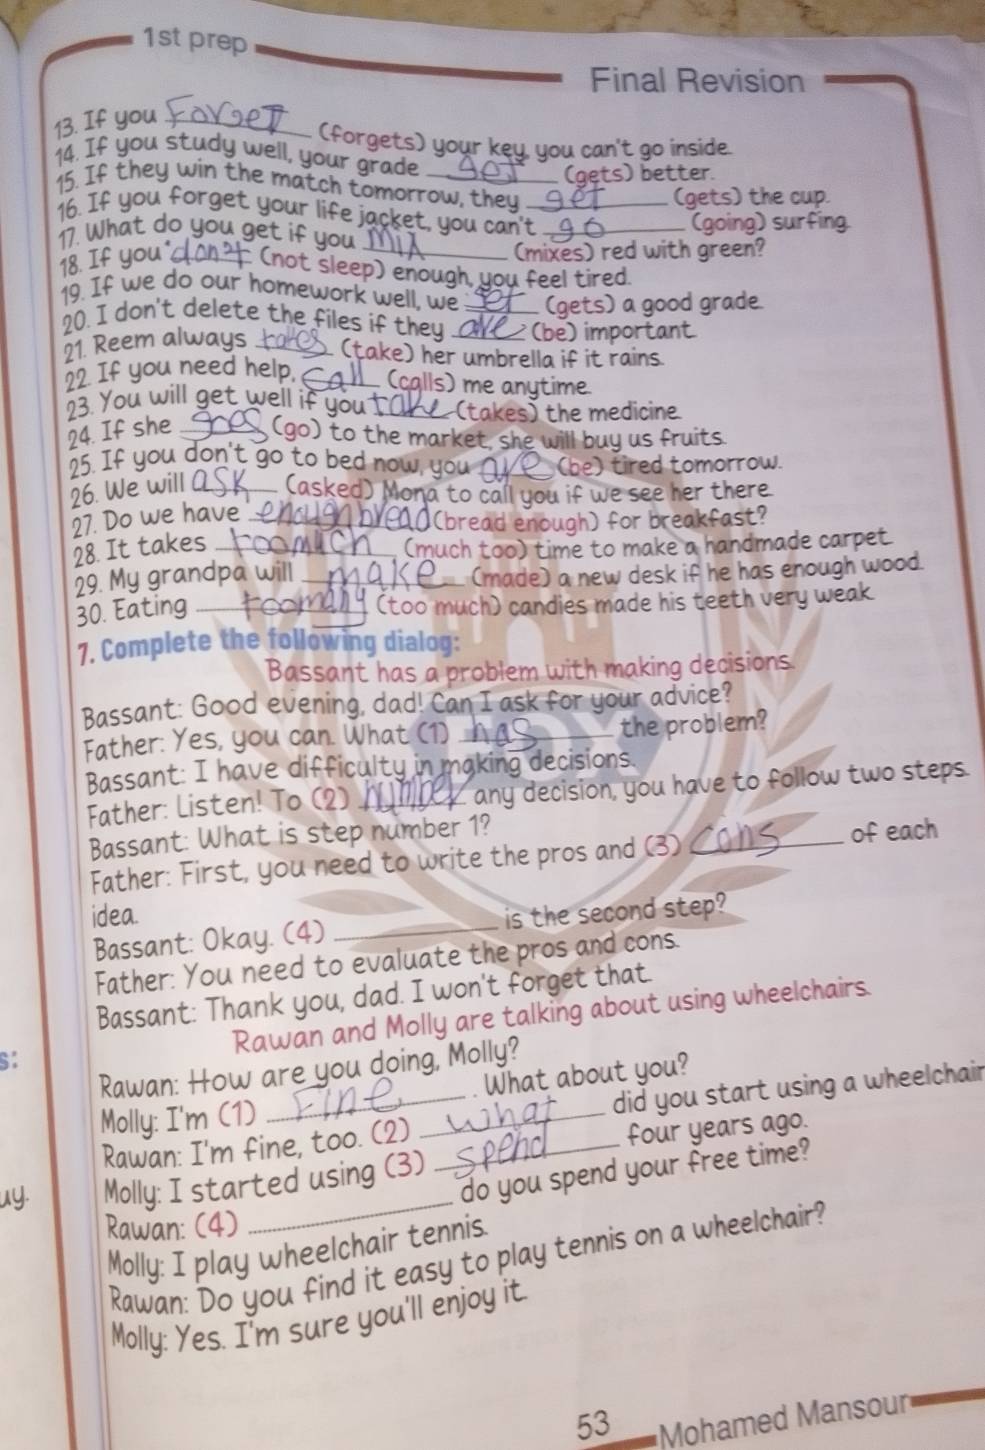 1st prep
Final Revision
13. If you Forget (forgets) your key, you can't go inside.
14. If you study well, your grade get (gets) better.
15. If they win the match tomorrow, they get (gets) the cup.
16. If you forget your life jacket, you can't go (going) surfing.
17. What do you get if you Mix (mixes) red with green?
18. If you don't (not sleep) enough, you feel tired.
19. If we do our homework well, we get (gets) a good grade.
20. I don't delete the files if they are (be) important.
21. Reem always takes (take) her umbrella if it rains.
22. If you need help, Call (calls) me anytime.
23. You will get well if you take (takes) the medicine.
24. If she goes (go) to the market, she will buy us fruits.
25. If you don't go to bed now, you are (be) tired tomorrow.
26. We will ask (asked) Mona to call you if we see her there.
27. Do we have enough bread (bread enough) for breakfast?
28. It takes too much (much too) time to make a handmade carpet.
29. My grandpa will make (made) a new desk if he has enough wood.
30. Eating too many (too much) candies made his teeth very weak.
7. Complete the following dialog:
Bassant has a problem with making decisions.
Bassant: Good evening, dad! Can I ask for your advice?
Father: Yes, you can. What (1) has the problem?
Bassant: I have difficulty in making decisions.
Father: Listen! To (2) number any decision, you have to follow two steps.
Bassant: What is step number 1?
Father: First, you need to write the pros and (3) cons of each
idea.
Bassant: Okay. (4) is the second step?
Father: You need to evaluate the pros and cons.
Bassant: Thank you, dad. I won't forget that.
Rawan and Molly are talking about using wheelchairs.
s:
Rawan: How are you doing, Molly?
Molly: I'm (1) Fine. What about you?
Rawan: I'm fine, too. (2) what did you start using a wheelchair
Molly: I started using (3) spend four years ago.
uy.
Rawan: (4) do you spend your free time?
Molly: I play wheelchair tennis.
Rawan: Do you find it easy to play tennis on a wheelchair?
Molly: Yes. I'm sure you'll enjoy it.
53
Mohamed Mansour